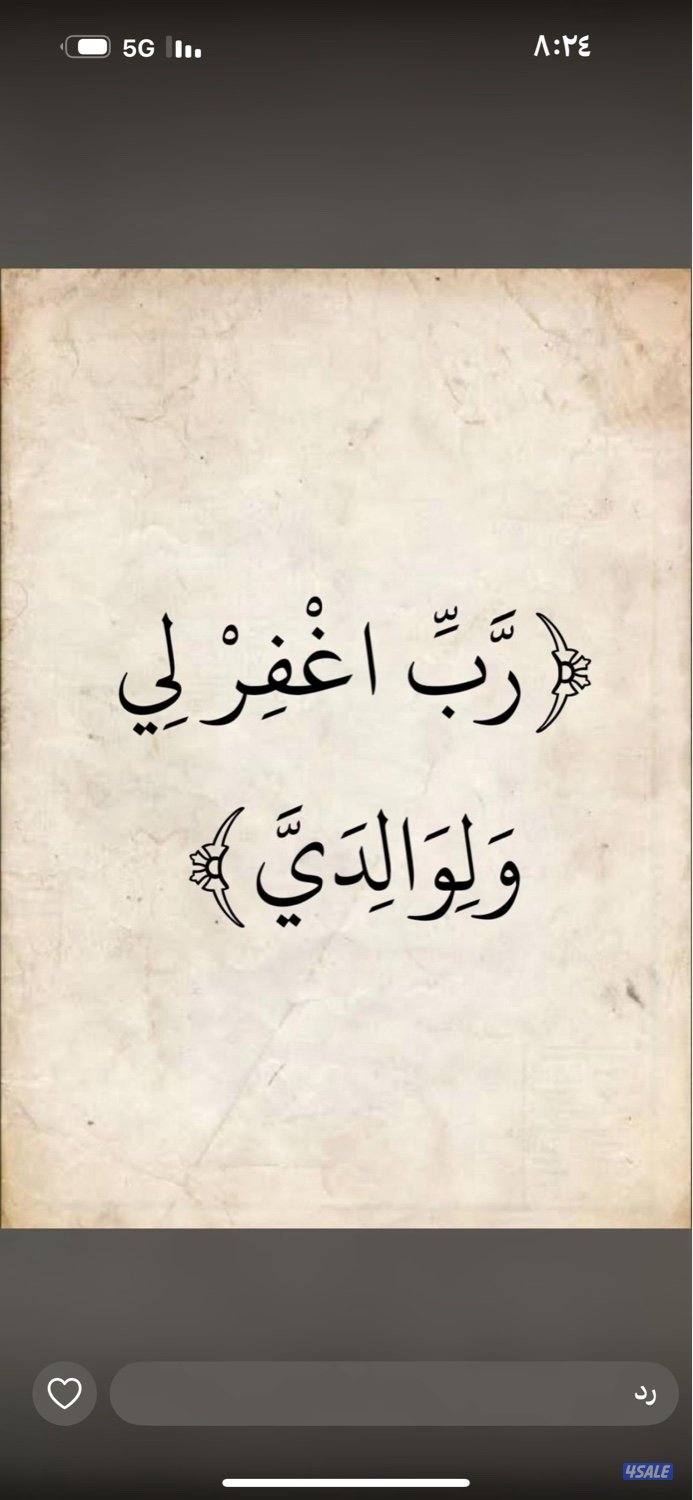 ٨:٢٤
5G
﴿ رَّبِّ اغْفِرْ لِي
وَلِوَالِدَيَّ ﴾
رد
4SALE